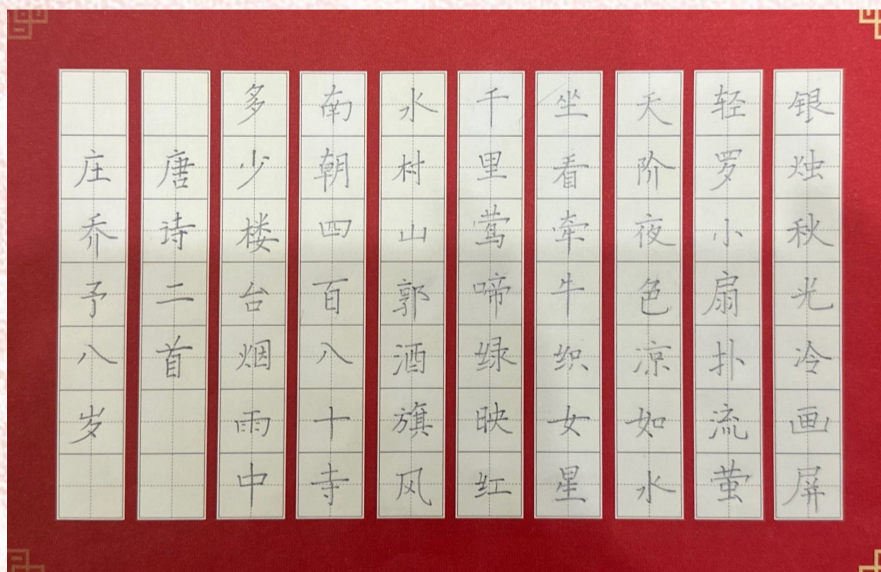 银烛秋光冷画屏
轻罗小扇扑流萤
天阶夜色凉如水
坐看牵牛织女星
千里莺啼绿映红
水村山郭酒旗风
南朝四百八十寺
多少楼台烟雨中
唐诗二首
庄乔予八岁